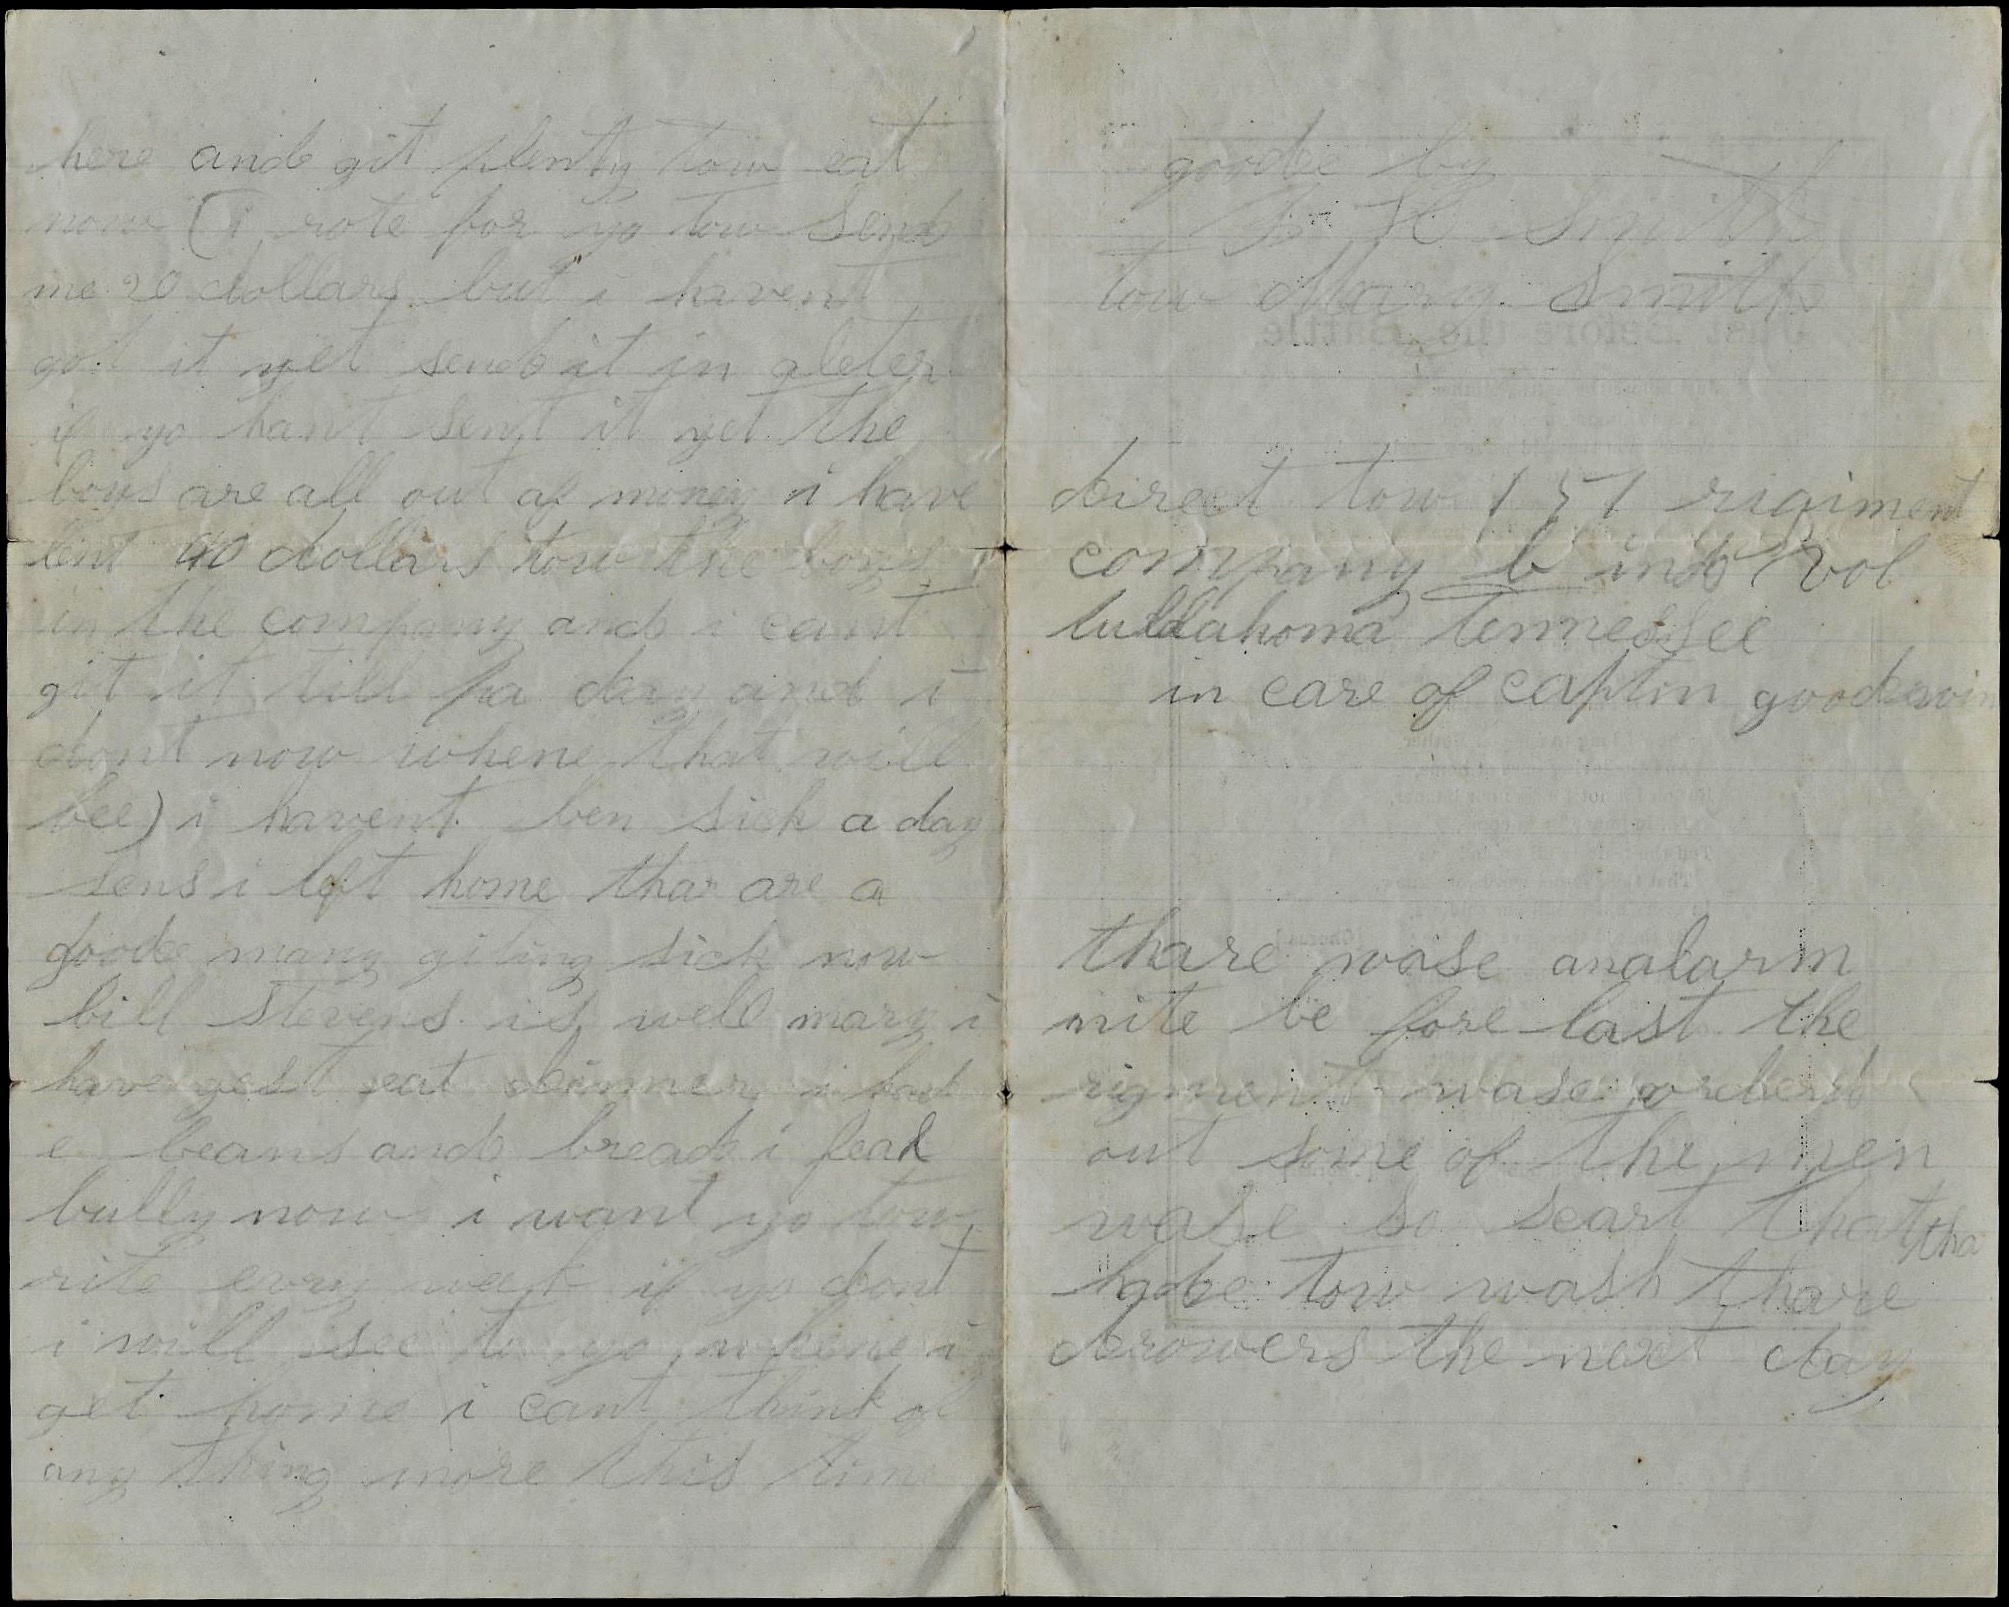 here and git plenty tow eat
now (i rote for yo tow send
me 20 dollars but i havent
got it yet send it in a leter
if yo hant sent it yet the
boys are all out of money i have
lent 40 dollars tow the boys
in the company and i cant
git it till pa day and i
dont now whene that will
bee) i havent ben sick a day
sens i left home thar are a
goode many giting sick now
bill stevens is well mary i
have gest eat dinner i had
beans and bread i feal
bully now i want yo tow
rite evry week if yo dont
i will see to yo whene i
get home i cant think of
any thing more this time
goode by
Smith
tow Mary Smith
Just Before the Battle
direct tow 151 rigiment
company b ind vol
tulllahoma tennessee
in care of captin goodewin
thare wase analarm
nite be fore last the
rigment wase orderd
out some of the men
wase so scart that tha
hade tow wash thare
drowers the next day